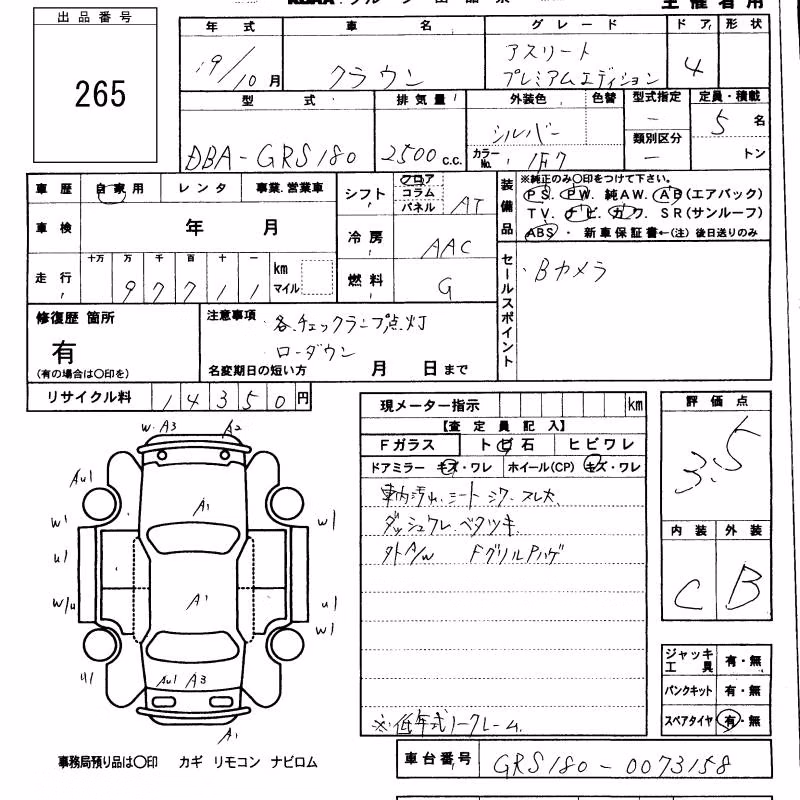 出品番号
265
年式 車名 グレード ドア 形状
19/10月 クラウン アスリート プレミアムエディション 4
型式 排気量 外装色 色替 型式指定 定員・積載
DBA-GRS180 2500c.c. シルバー - 5名
カラーNo. 1F7 類別区分 - トン
車歴 自家用 レンタ 事業.営業車
シフト フロア コラム パネル AT
装備品 ※純正のみ〇印をつけて下さい。
PS. PW. 純AW. AB(エアバック)
TV. ナビ. カワ. SR(サンルーフ)
ABS・ 新車保証書←(注) 後日送りのみ
車検 年 月
冷房 AAC
走行 十万 万 千 百 十 一
97711 km マイル
燃料 G
セールスポイント ・Bカメラ
修復歴 箇所
有
(有の場合は〇印を)
注意事項
各.チェックランプ点灯
ローダウン
名変期日の短い方 月 日まで
リサイクル料 14350円
現メーター指示 km
【査定員記入】
Fガラス トビ石 ヒビワレ
ドアミラー キズ・ワレ ホイール(CP) キズ・ワレ
車内汚れ.シート シワ.スレ大
ダッシュワレ.ベタツキ
外A/W FグリルPハゲ
※低年式ノークレーム.
評価点
3.5
内装 外装
C B
W.A3 A2
AU1
A1
W1 W1
U1
W/U A1 U1
W1
U1 AU1 A3
A1
ジャッキ工具 有・無
パンクキット 有・無
スペアタイヤ 有・無
事務局預り品は〇印 カギ リモコン ナビロム
車台番号 GRS180-0073158